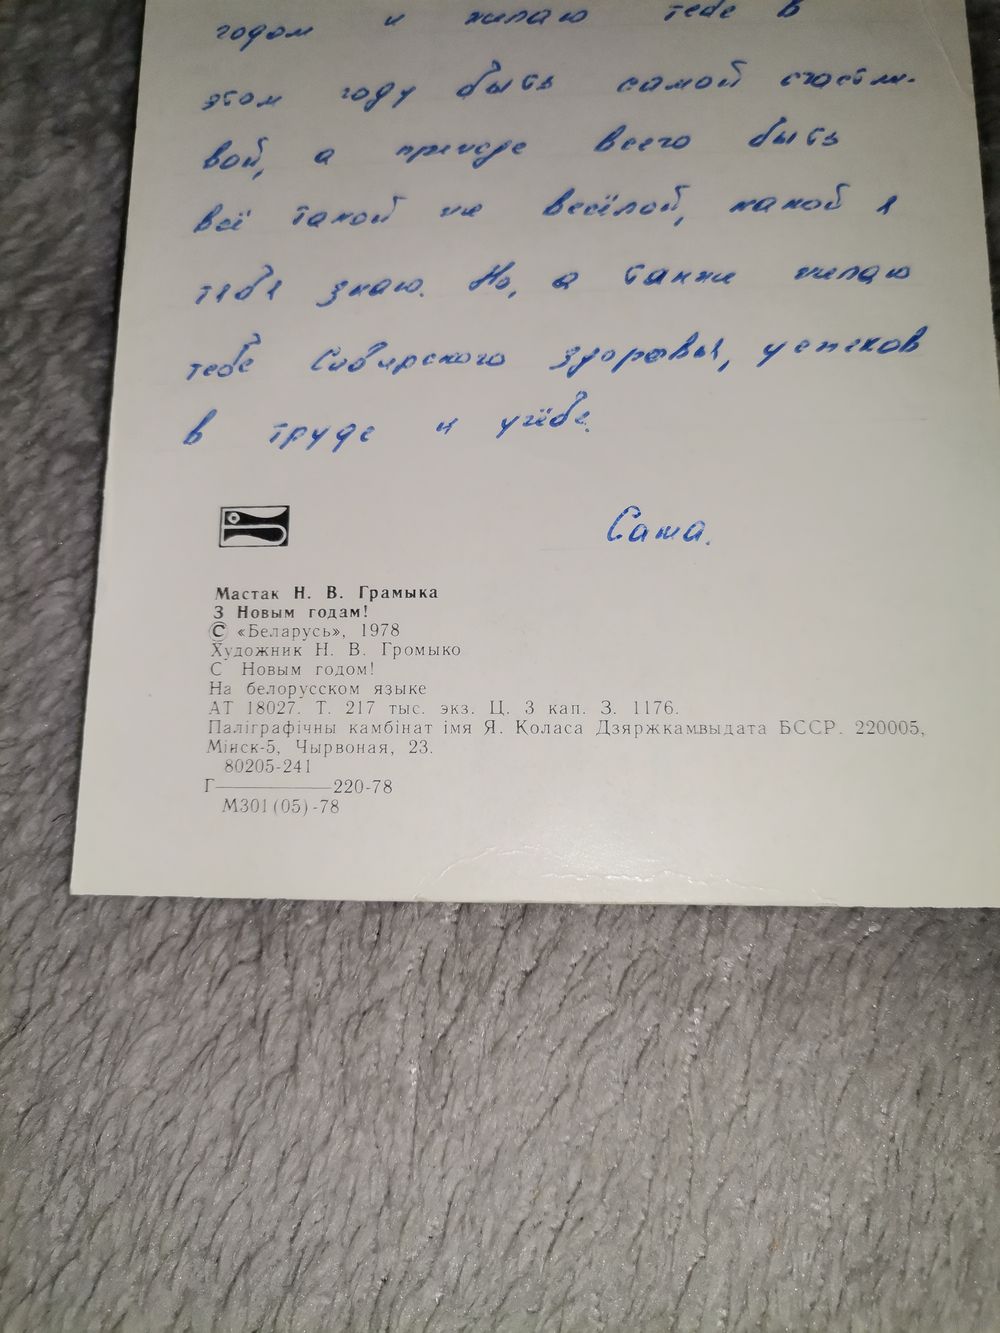 годом и желаю тебе в
этом году быть самой счастли-
вой, а прежде всего быть
всё такой же весёлой, какой я
тебя знаю. Но, а также желаю
тебе Сибирского здоровья, успехов
в труде и учёбе.
Саша.
Мастак Н. В. Грамыка
З Новым годам!
© «Беларусь», 1978
Художник Н. В. Громыко
С Новым годом!
На белорусском языке
АТ 18027. Т. 217 тыс. экз. Ц. 3 кап. З. 1176.
Паліграфічны камбінат імя Я. Коласа Дзяржкамвыдата БССР. 220005,
Мінск-5, Чырвоная, 23.
80205-241
Г————220-78
М301(05)-78